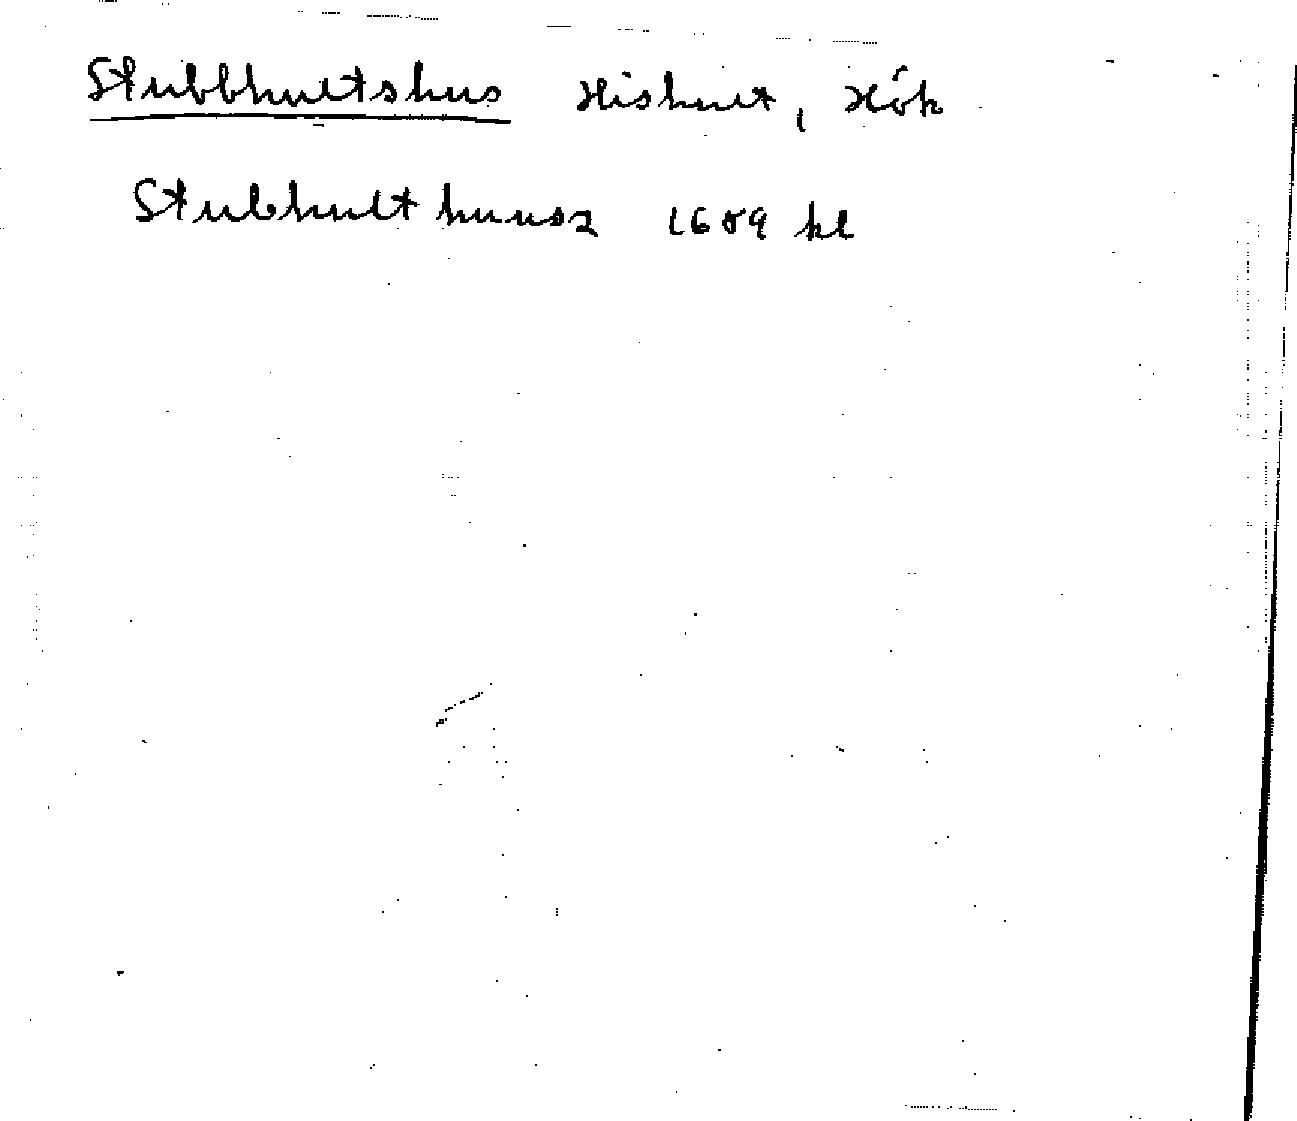 Stubbhultshus Hishult, Hök
Stubhult huusz 1689 kl